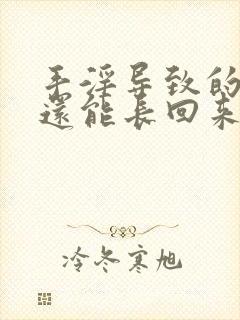 手淫导致的
还能长回来
冷冬寒旭